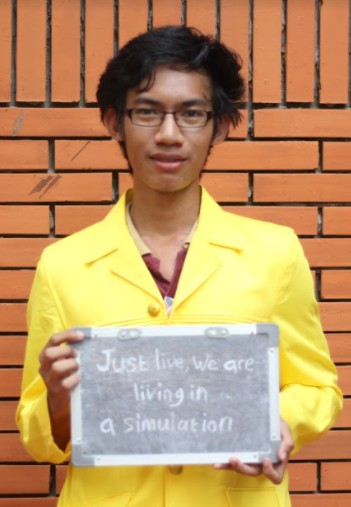 Just live, we are
living in
a simulation